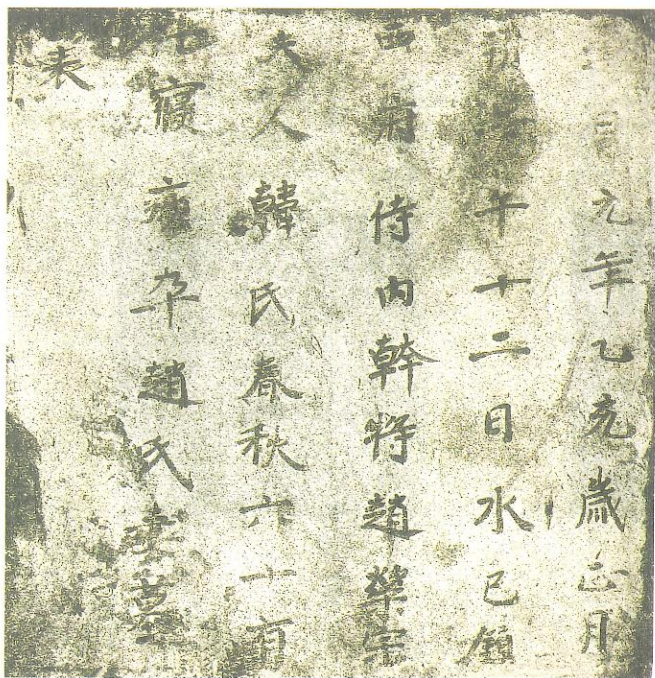 昌元年乙亥歲正月
午十二日水巳鎮
西府侍内幹將趙榮宗
夫人韓氏春秋六十有
七寢疾卒趙氏妻墓
表